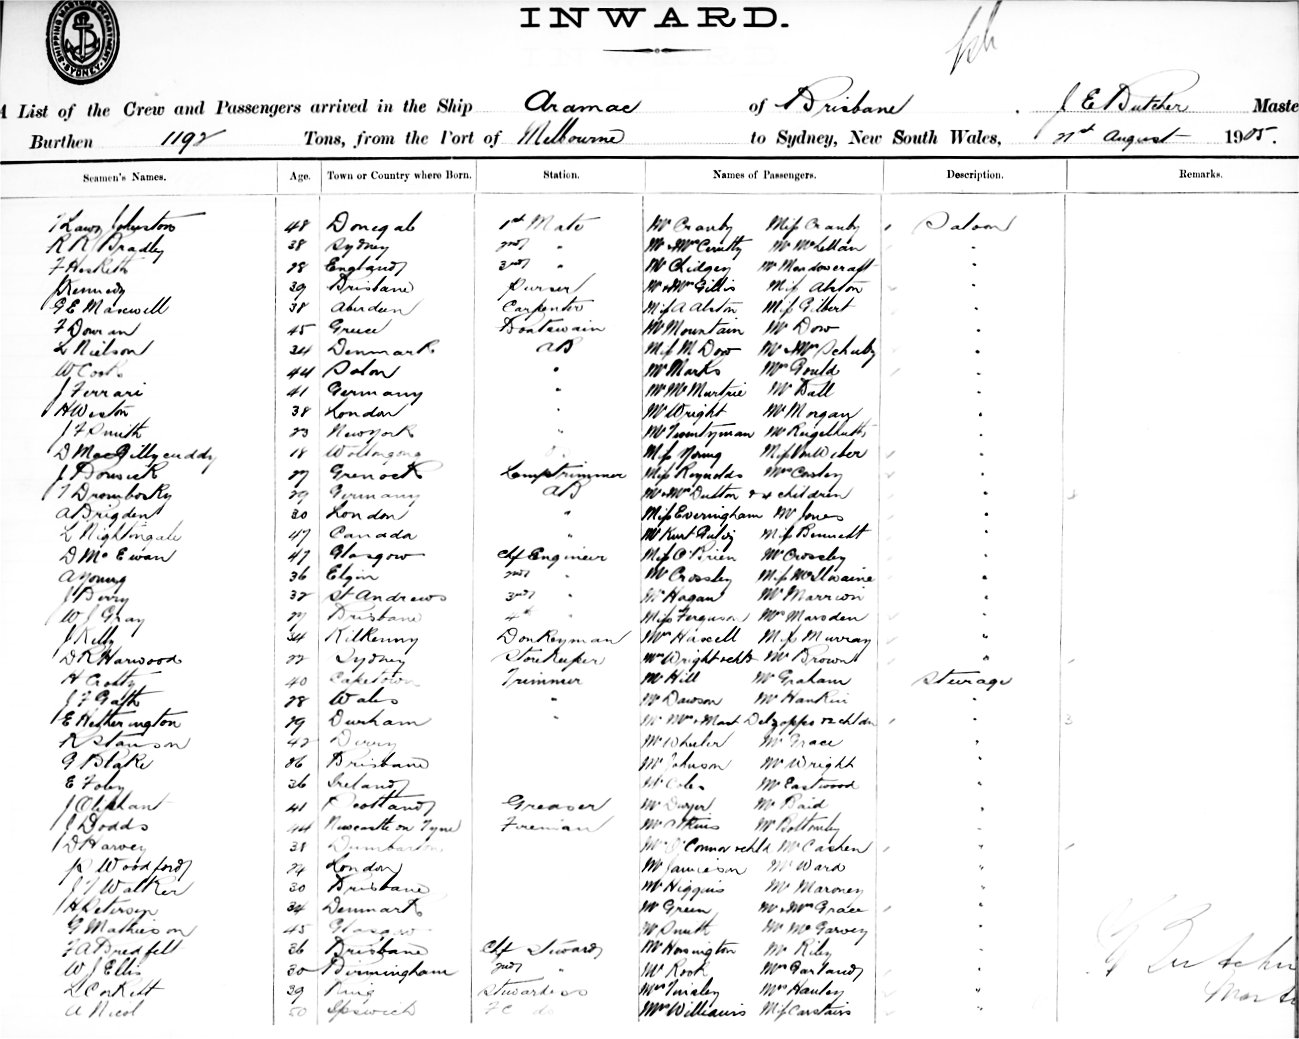 SHIPPING MASTERS DEPARTMENT SYDNEY
INWARD.
A List of the Crew and Passengers arrived in the Ship Aramac of Brisbane . J E Butcher Maste
Burthen 1192 Tons, from the Port of Melbourne to Sydney, New South Wales, 21st August 1905.
Seamen's Names. Age. Town or Country where Born. Station. Names of Passengers. Description. Remarks.
Johnston 48 Donegal 1st Mate Mr Cranby Miss Cranby Saloon
R R Bradley 38 Sydney 2nd " Mr McLellan "
F Hesketh 28 England 3rd " Mr Chidgey Mr Meadowcraft "
J Kennedy 39 Brisbane Purser Mr & Mrs Gillis Miss Alston "
G E Maxwell 38 Aberdeen Carpenter Miss A Alston Miss Gilbert "
F Douran 45 Greece Boatswain Mr Mountain Mr Dow "
L Nielson 34 Denmark AB Miss M Dow Mr & Mrs Schuby "
W Cook 44 " Mr Marks Mrs Gould "
J Ferrari 41 Germany " Mr McMurtrie Mr Dall "
H Weston 38 London " Mr Wright Mr Morgan "
J F Smith 23 New York " Mr Twentyman "
D MacGillycuddy 18 Wollongong " Miss Young Miss Von Weber "
J 27 Grenock Lamptrimmer Miss Reynolds Mrs Cosby "
T Drombosky 29 Germany AB Mr & Mrs Dutton & 4 children " 3
A Brigden 30 London " Miss Everingham Mr Jones "
L Nightingale 47 Canada " Mr Kurt Miss Bennett "
D McEwan 47 Glasgow Chf Engineer Miss O'Brien Mr Crossley "
A Young 36 Elgin 2nd " Mr Crossley Miss McIlwaine "
J Berry 32 St Andrews 3rd " Mr Hagan Mr Marrion "
W J Gray 27 Brisbane 4th " Miss Ferguson Mrs Marsden "
J Kelly 34 Kilkenny Donkeyman Mrs Hassell Miss Murray "
D R Harwood 22 Sydney Storekeeper Mrs Wright & chld Mr Brown "
H Crosby 40 Capetown Trimmer Mr Hill Mr Graham Steerage
J F Gath 28 Wales " Mr Dawson Mr Hankin "
E Hetherington 29 Durham " Mr Mrs & Mast Delzoppo & 2 chldn " 3
R Stawson 42 Derry Mr Wheeler Mr Grace "
G Blake 26 Brisbane Mr Johnson Mr Wright "
E Foley 36 Ireland Mr Coles Mr Eastwood "
J Oliphant 41 Scotland Greaser Mr Dwyer Mr Baid "
J Dodds 44 Newcastle on Tyne Fireman Mr Atkins Mr Bottomley "
D Harvey 38 Dumbarton Mr O'Connor & chld Mr Cashen "
P Woodford 24 London Mr Jamieson Mr Ward "
J T Walker 30 Brisbane Mr Higgins Mr Maroney "
H Petersen 34 Denmark Mr Green Mr & Mrs Grace "
G Mathieson 45 Glasgow Mr Smith Mr McGarvey "
F A Bredfelt 36 Brisbane Chf Steward Mr Honsington Mr Riley "
W J Ellis 30 Birmingham 2nd " Mr Rook Mrs Garland "
L Corkett 39 Stewardess Mrs Tinsley Mrs Hanley "
A Nicol 50 Ipswich F C do Mrs Williams Miss Carstairs "